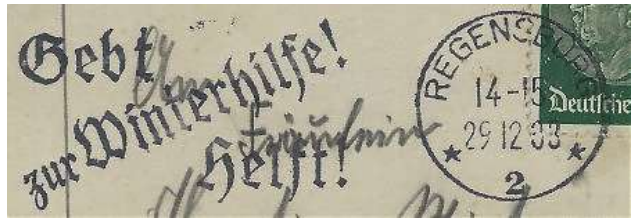 Gebt
zur Winterhilfe!
Helft!
An
Fräulein
REGENSBURG
14-15
29 12 33
2
Deutsche